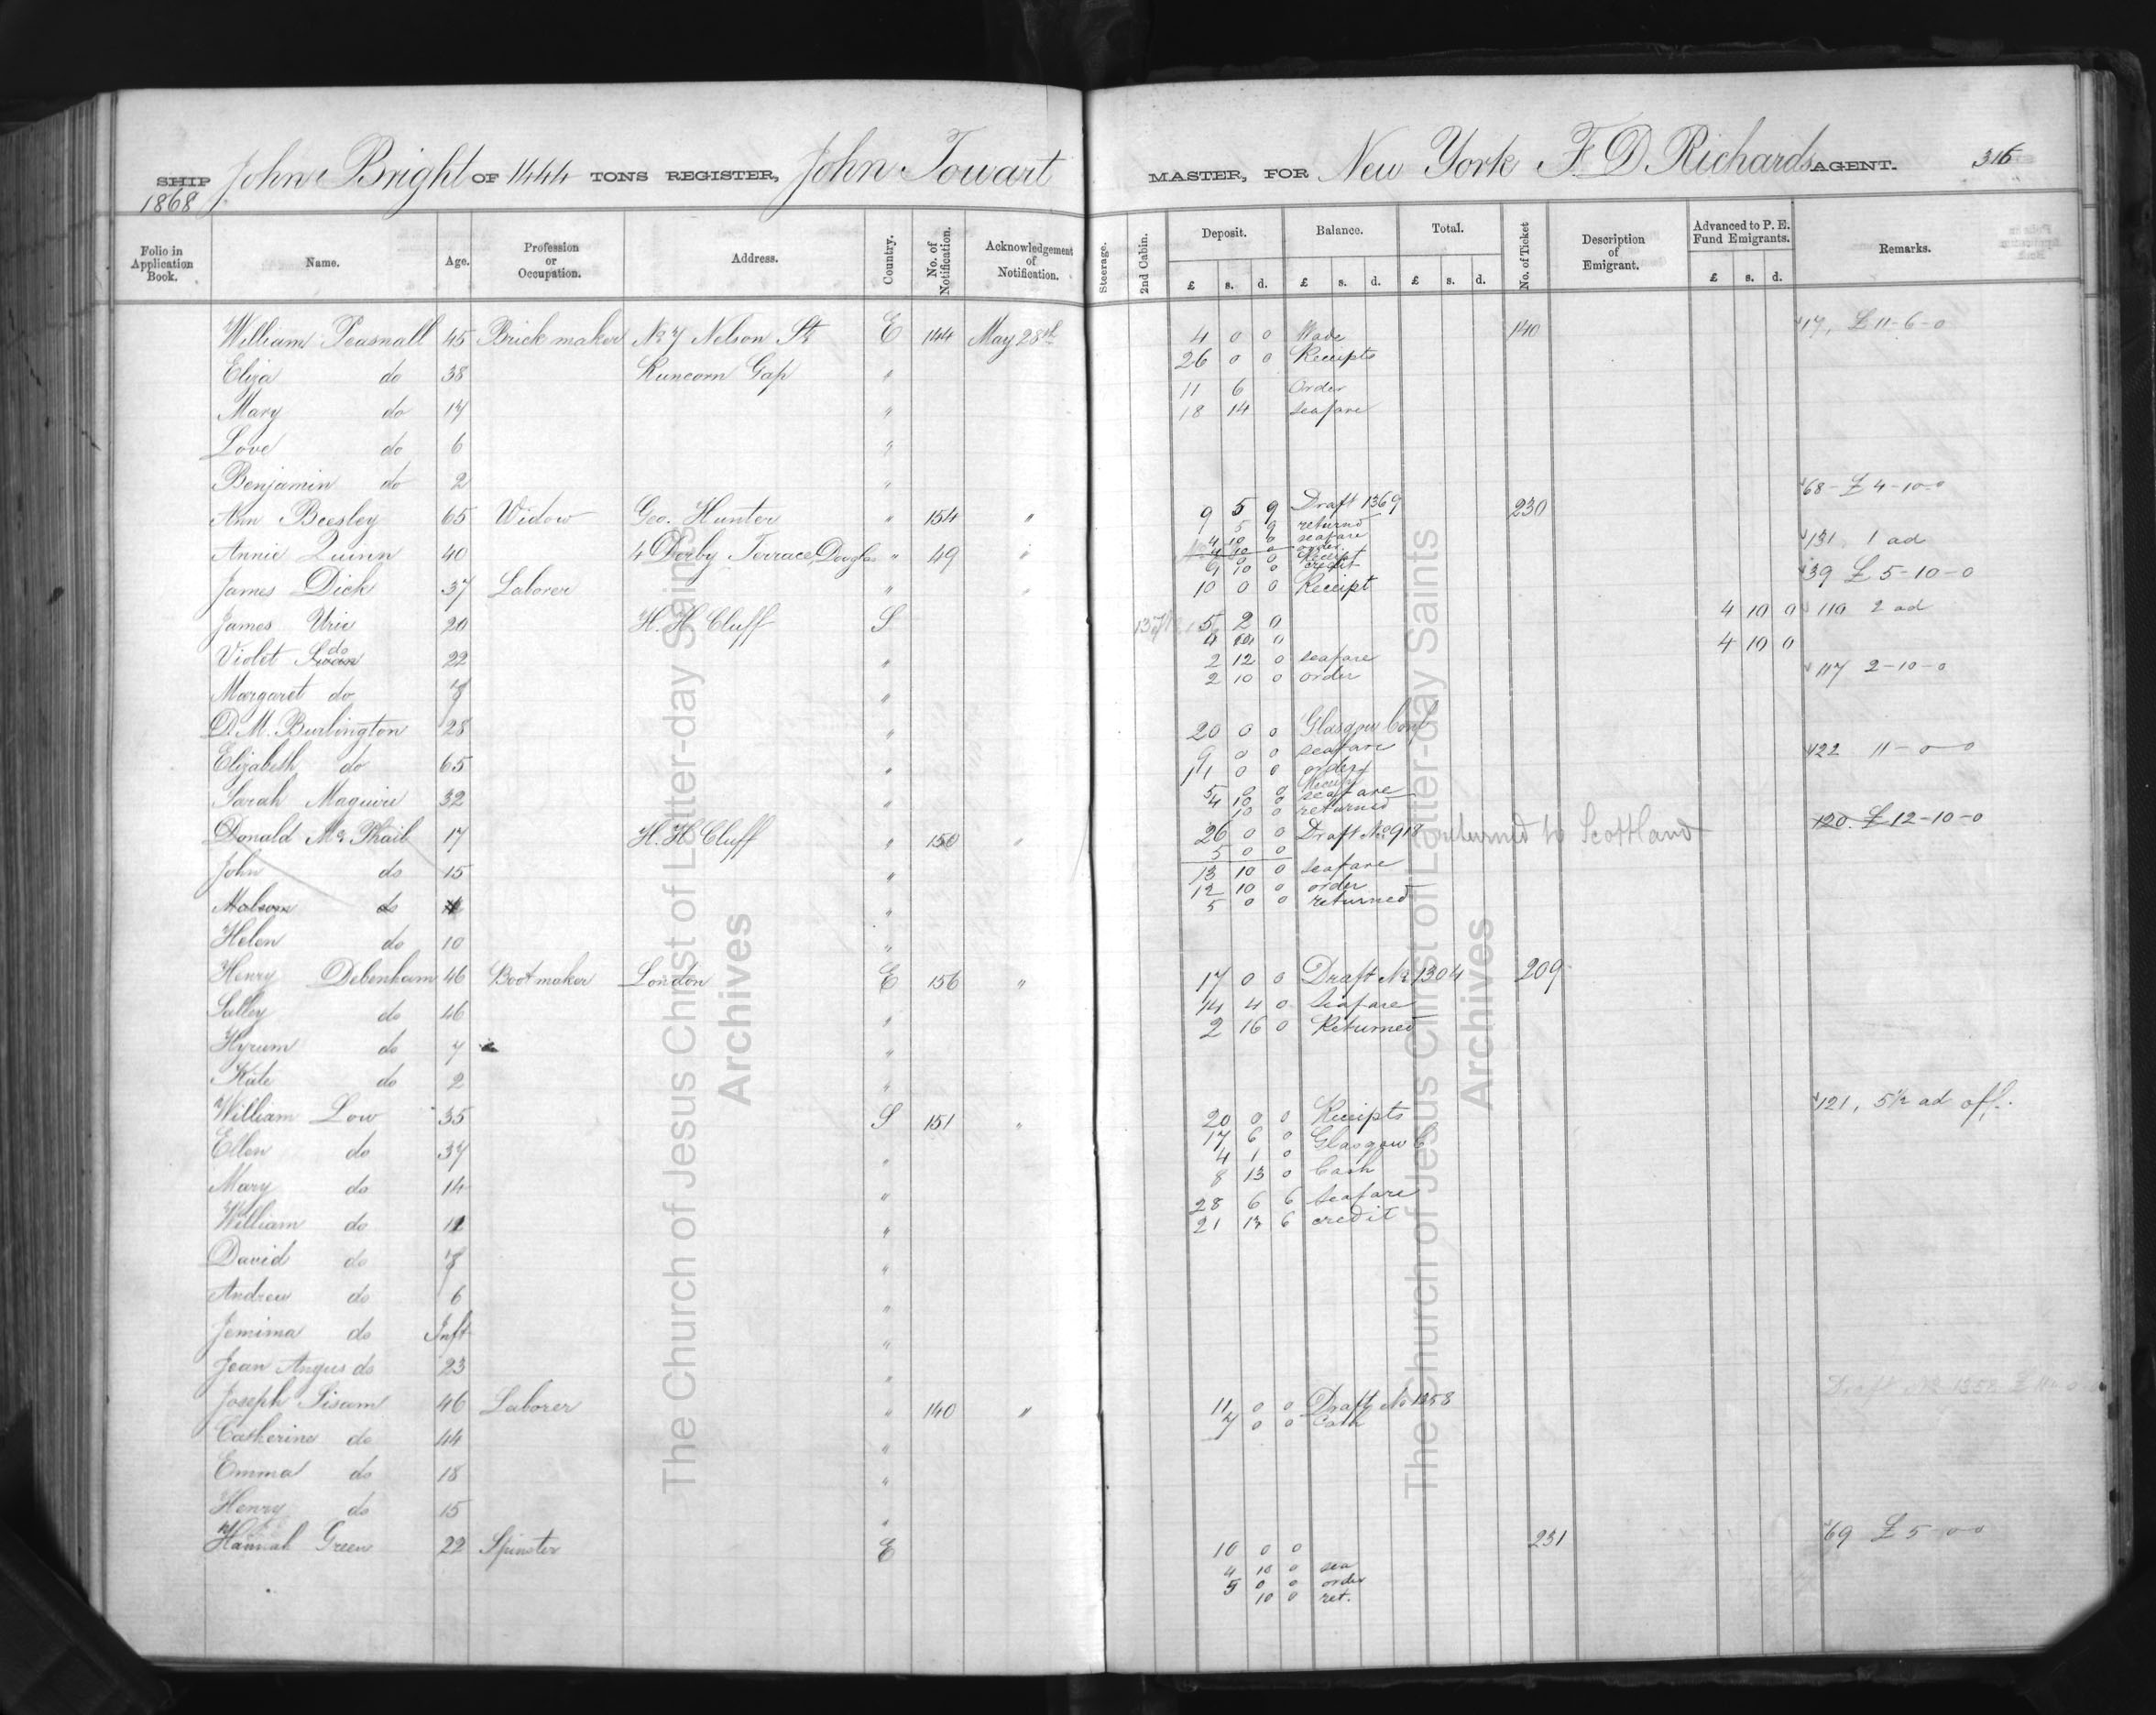 SHIP John Bright OF 1444 TONS REGISTER, John Towart MASTER, FOR New York F. D. Richards AGENT. 316
1868
Folio in Application Book. Name. Age. Profession or Occupation. Address. Country. No. of Notification. Acknowledgement of Notification. Steerage. 2nd Cabin. Deposit. £ s. d. Balance. £ s. d. Total. £ s. d. No. of Ticket Description of Emigrant. Advanced to P. E. Fund Emigrants. £ s. d. Remarks.
William Peasnall 45 Brick maker No 7 Nelson St E 144 May 28th 4 0 0 Made 140 17, £ 11-6-0
26 0 0 Receipts
Eliza do 38 Runcorn Gap " 11 6 Order
Mary do 17 " 18 14 seafare
Love do 6 "
Benjamin do 2 "
68 - £ 4-10-0
Ann Beesley 65 Widow Geo. Hunter " 154 " 9 5 9 Draft 1369 230
5 9 returned
4 10 0 seafare
Annie Quinn 40 4 Derby Terrace, Douglas " 49 " 131 1 ad
6 10 0 credit
James Dick 37 Laborer " 10 0 0 Receipt 39 £ 5-10-0
James Urie 20 H. H. Cluff S 5 2 0 4 10 0 110 2 ad
4 10 0
Violet do 22 " 2 12 0 seafare
2 10 0 order 117 2-10-0
Margaret do "
D. M. Burlington 28 " 20 0 0 Glasgow Conf
9 0 0 seafare
Elizabeth do 65 " 11 0 0 order 122 11-0-0
Sarah Maguire 32 " 5 0 0 Receipt
4 10 0 seafare
10 0 returned
Donald Mc Phail 17 H. H. Cluff " 150 " 26 0 0 Draft No 918 returned to Scottland 120. £ 12-10-0
5 0 0
John do 15 " 13 10 0 seafare
12 10 0 order
Malcom do " 5 0 0 returned
Helen do 10 "
Henry Debenham 46 Boot maker London E 156 " 17 0 0 Draft No 1304 209
Salley do 46 " 14 4 0 Seafare
2 16 0 Returned
Hyrum do 7 "
Kate do 2 "
William Low 35 S 151 " 20 0 0 Receipts 121, 5 1/2 ad off.
17 6 0 Glasgow C
Ellen do 37 " 4 1 0
8 13 0 Cash
Mary do 14 " 28 6 6 Seafare
William do " 21 13 6 credit
David do "
Andrew do 6 "
Jemima do Inft "
Jean Angus do 23 "
Joseph Sisam 46 Laborer " 140 " 11 0 0 Draft No 1358
7 0 0 Cash
Draft No 1358 £
Catherine do 44 "
Emma do 18 "
Henry do 15 "
Hannah Green 22 Spinster E 10 0 0 231 69 £ 5-0-0
4 10 0 sea
5 0 0 order
10 0 ret.
The Church of Jesus Christ of Latter-day Saints
Archives
The Church of Jesus Christ of Latter-day Saints
Archives